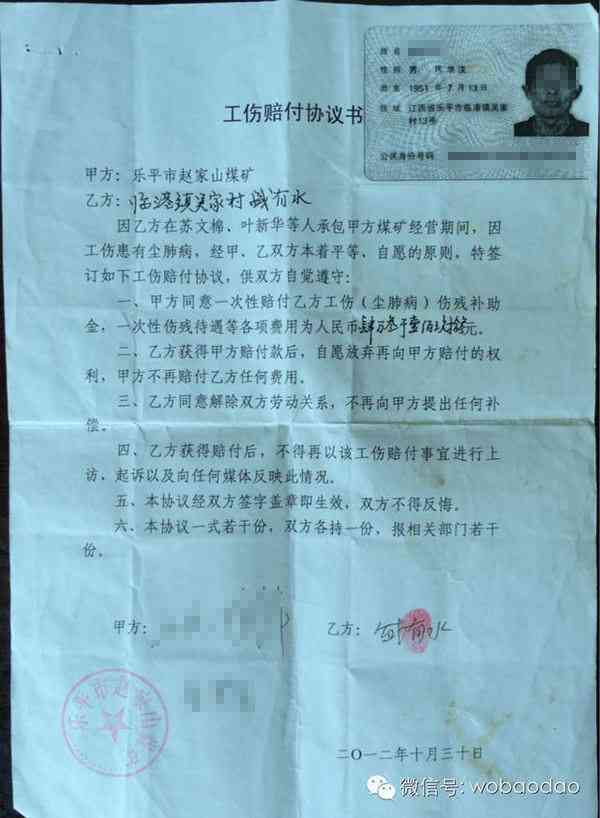 姓名
性别 男 民族 汉
出生 1951 年 7 月 13 日
住址 江西省乐平市临港镇吴家
村13号
公民身份号码
工伤赔付协议书
甲方：乐平市赵家山煤矿
乙方：临港镇吴家村 有水
因乙方在苏文棉、叶新华等人承包甲方煤矿经营期间，因
工伤患有尘肺病，经甲、乙双方本着平等、自愿的原则，特签
订如下工伤赔付协议，供双方自觉遵守：
一、甲方同意一次性赔付乙方工伤（尘肺病）伤残补助
金，一次性伤残待遇等各项费用为人民币肆万 仟壹佰 元。
二、乙方获得甲方赔付款后，自愿放弃再向甲方赔付的权
利，甲方不再赔付乙方任何费用。
三、乙方同意解除双方劳动关系，不再向甲方提出任何补
偿。
四、乙方获得赔付后，不得再以该工伤赔付事宜进行上
访，起诉以及向任何媒体反映此情况。
五、本协议经双方签字盖章即生效，双方不得反悔。
六、本协议一式若干份，双方各持一份，报相关部门若干
份。
甲方：
乙方： 有水
乐平市赵家山煤矿
二〇一二年十月三十日
微信号: wobaodao